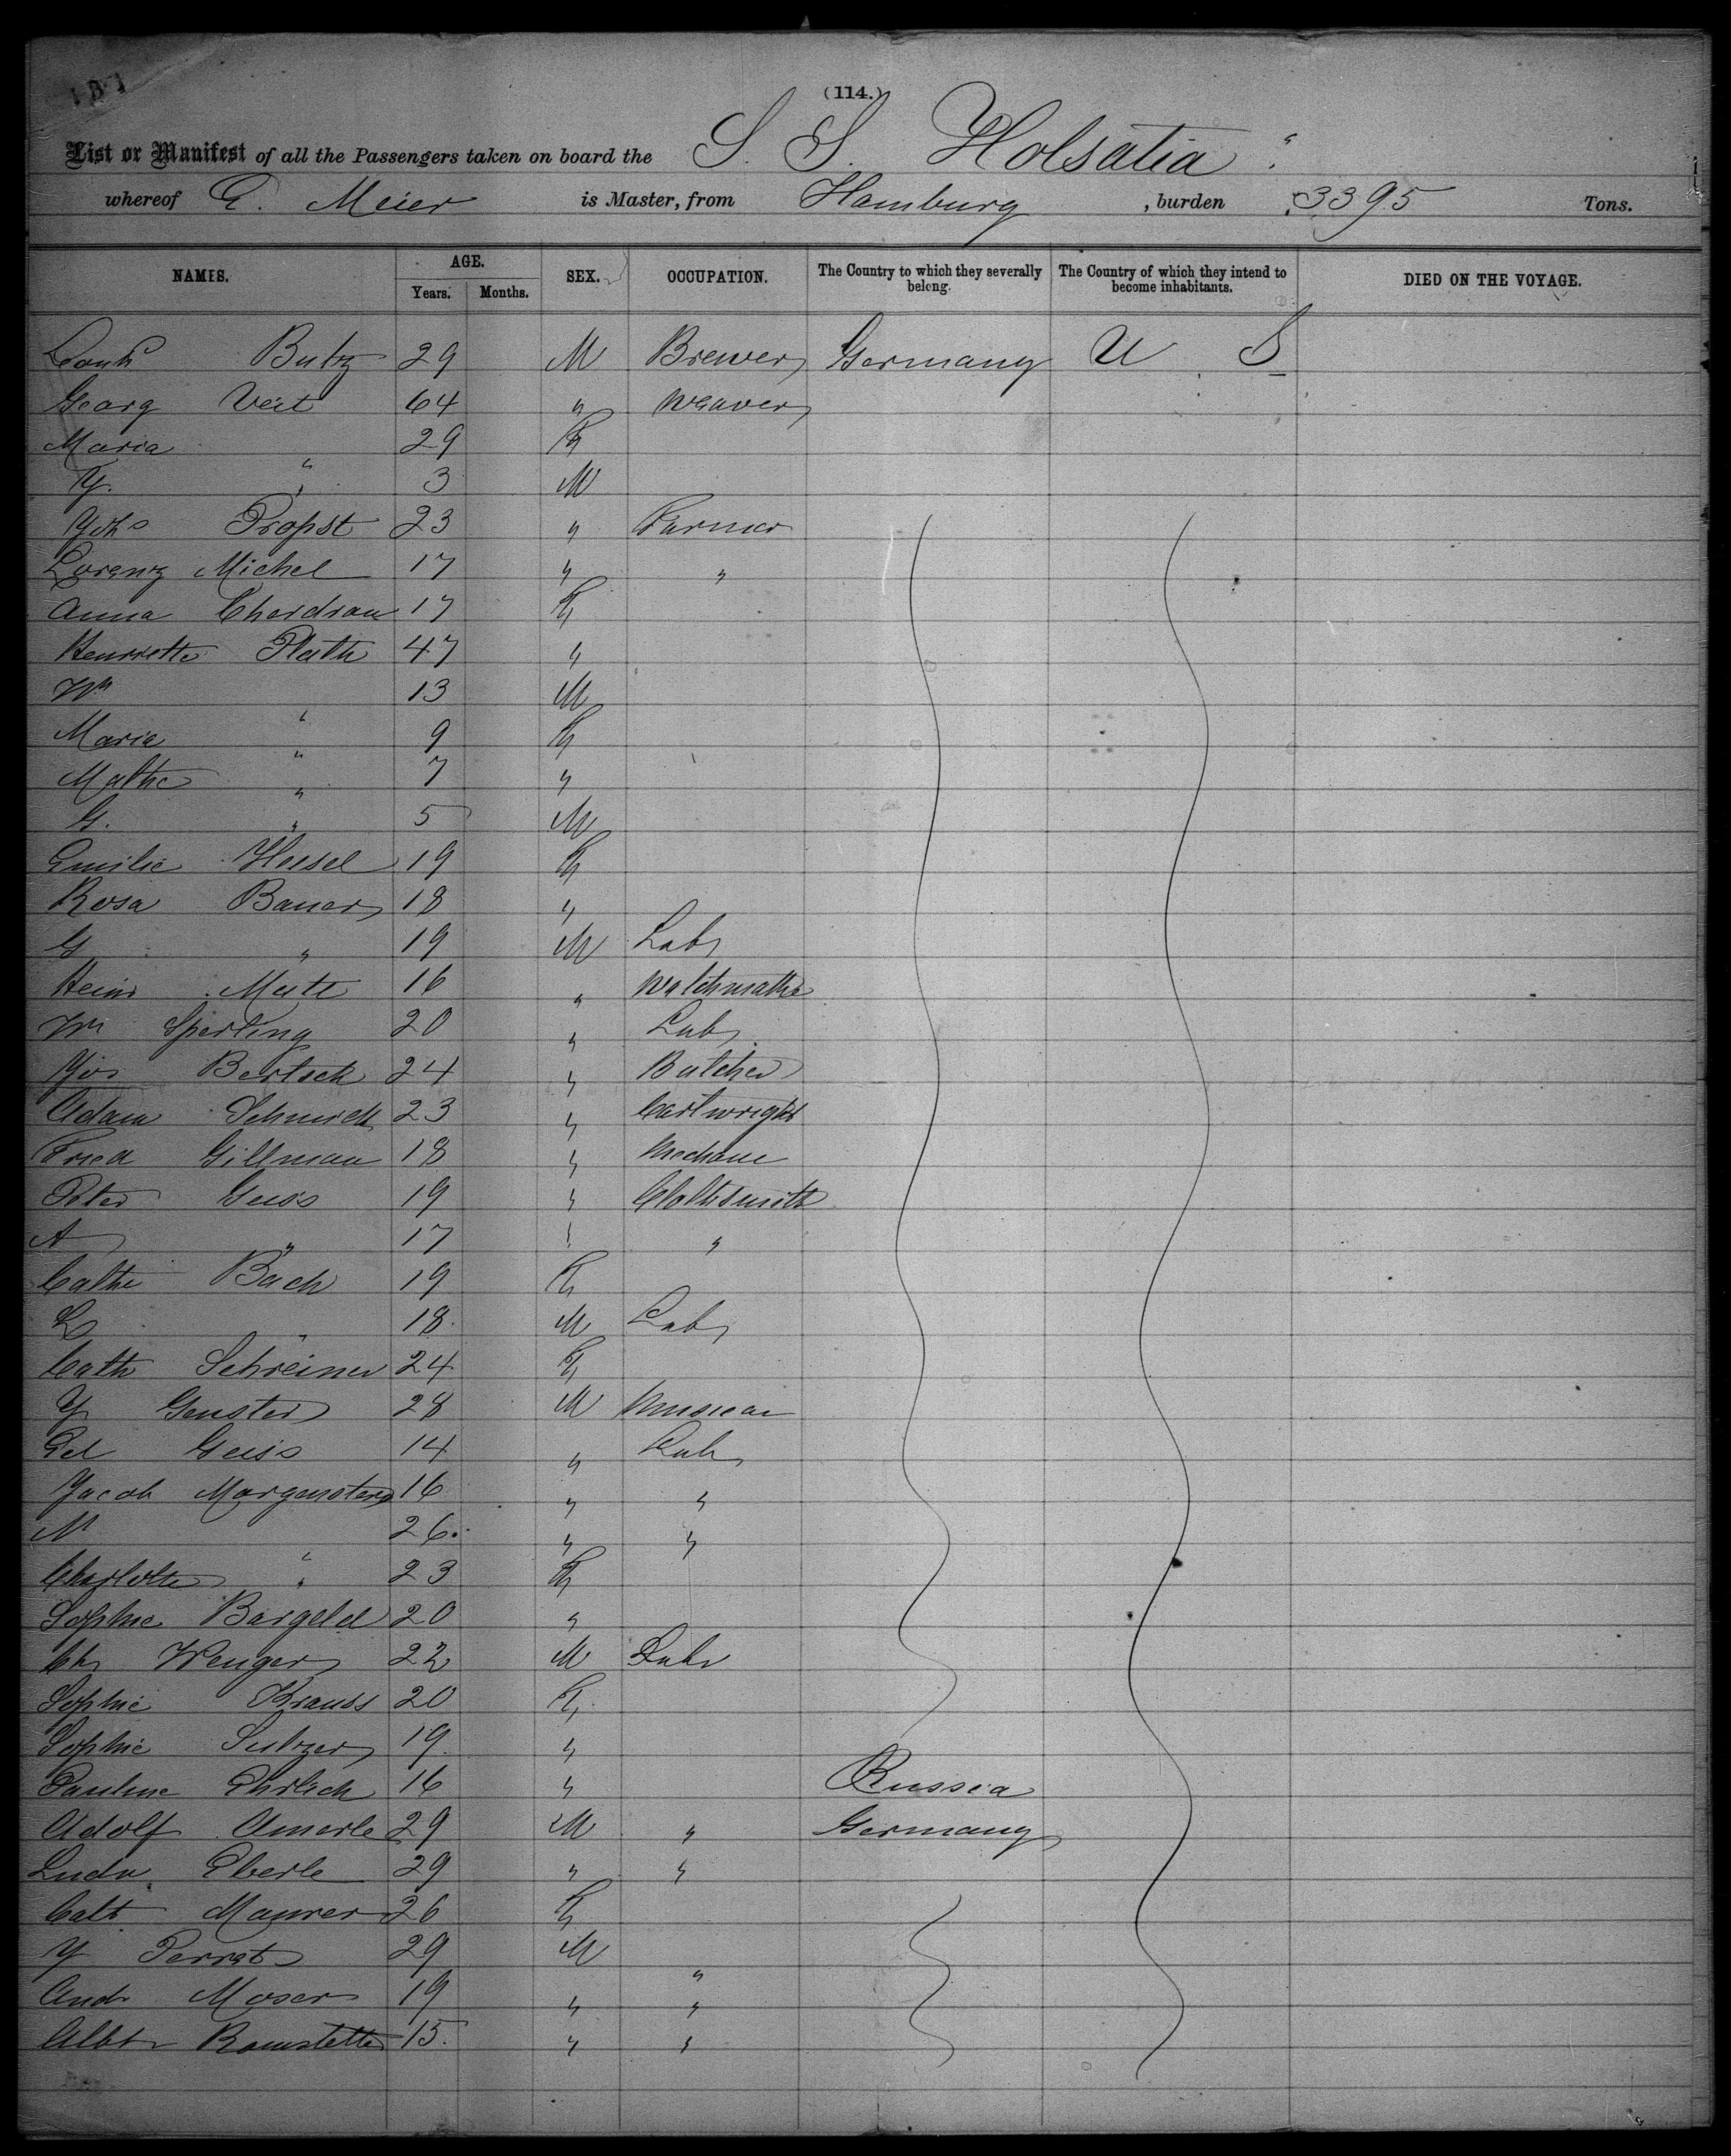 (114.)
List or Manifest of all the Passengers taken on board the S. S. Holsatia "
whereof E. Meier is Master, from Hamburg, burden 3395 Tons.
NAMES. AGE. SEX. OCCUPATION. The Country to which they severally belong. The Country of which they intend to become inhabitants. DIED ON THE VOYAGE.
Years. Months.
Butz 29 M Brewer Germany U S
Georg Veit 64 " Weaver
Maria " 29 F
Y. " 3 M
Joh Propst 23 " Farmer
Lorenz Michel 17 " "
Anna 17 F
Henriette Plath 47 "
Wm " 13 M
Maria " 9 F
Mathe " 7 "
G. " 5 M
Emilie Hessel 19 F
Rosa Bauer 18 "
G " 19 M Labr
Heinr 16 "
Wm Sperling 20 " Labr
Bertsch 24 " Butcher
Adam Schmidt 23 " Cartwright
Fried Gillman 18 " Mechanic
Peter Geiss 19 " Clothsmith
A " 17 " "
Cathe Bach 19 F
L " 18 M Labr
Cath Schreiner 24 F
Y Genster 28 M Musican
Ed Geiss 14 " Labr
Jacob Morgenstern 16 " "
M " 26 " "
Charlotte " 23 F
Sophie Bargeld 20 "
Ch Wenger 22 M Labr
Sophie Krauss 20 F
Sophie Sulzer 19 "
Pauline Ehrlich 16 " Russia
Adolf Amerle 29 M " Germany
Ludw. Eberle 29 " "
Cath Maurer 26 F
Y Perrot 29 M "
Andr Moser 19 " "
Albt Ramstetter 15 " "